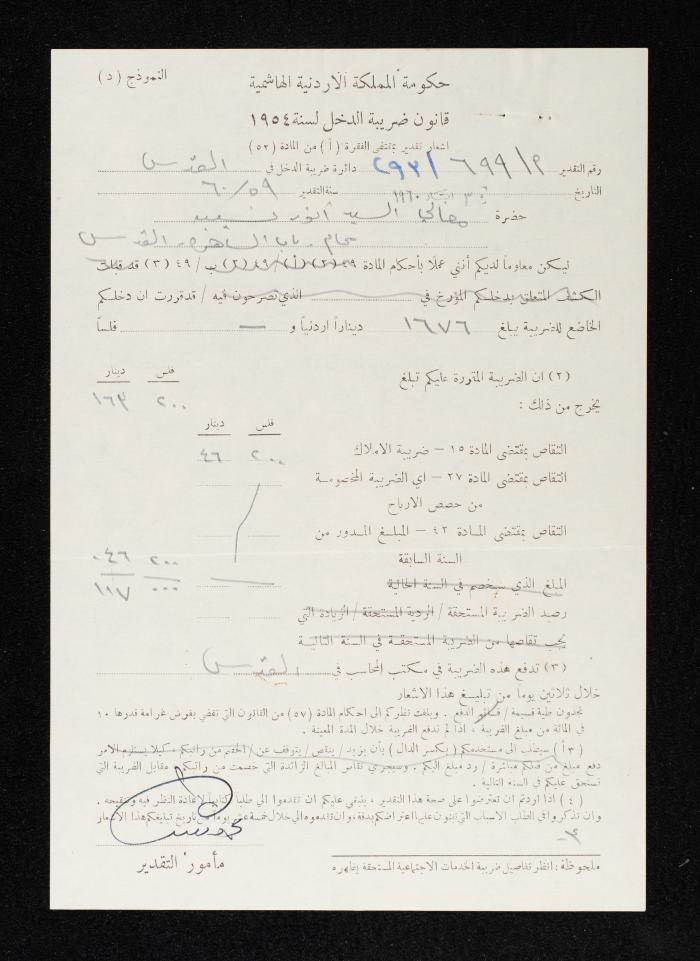 النموذج (د)
حكومة المملكة الاردنية الهاشمية
قانون ضريبة الدخل لسنة ١٩٥٤
اشعار تقدير بمقتضى الفقرة (أ) من المادة (٥٣)
رقم التقدير ٦٩٩/٣ /٢٩٣ دائرة ضريبة الدخل في القدس
التاريخ ١٩٦٠ سنة التقدير ٦٠/٥٩
حضرة معالي السيد أنور نسيبه
محام - باب الساهره - القدس
ليكن معلوماً لديكم أنني عملاً بأحكام المادة ٤٩ (٢) (أ) / ٤٩ (٢) ب / ٤٩ (٣) قد قبلت
الكشف المتعلق بدخلكم المؤرخ في الذي تصرحون فيه / قد قررت ان دخلكم
الخاضع للضريبة يبلغ ١٦٧٦ ديناراً اردنياً و — فلساً
(٢) ان الضريبة المقررة عليكم تبلغ
فلس دينار
٢٠٠ ١٦٣
يخرج من ذلك :
فلس دينار
التقاص بمقتضى المادة ١٥ – ضريبة الاملاك ٢٠٠ ٤٦
التقاص بمقتضى المادة ٢٧ – اي الضريبة المخصومة
من حصص الارباح
التقاص بمقتضى المادة ٤٢ – المبلغ المدور من
السنة السابقة ٢٠٠ ٠٤٦
المبلغ الذي سيخصم في السنة الحالية ٠٠٠ ١١٧
رصيد الضريبة المستحقة / الردية المستحقة / الزيادة التي
يجب تقاصها من الضريبة المستحقة في السنة التالية
(٣) تدفع هذه الضريبة في مكتب المحاسب في القدس
خلال ثلاثين يوماً من تبليغ هذا الاشعار
تجدون طية قسيمة / قسائم الدفع . ويلفت نظركم الى احكام المادة (٥٧) من القانون التي تقضي بفرض غرامة قدرها ١٠
في المائة من مبلغ الضريبة ، اذا لم تدفع الضريبة خلال المدة المعينة .
(٣ أ) سيطلب الى مستخدمكم (بكسر الدال) بأن يزيد / ينقص / يتوقف عن / الخصم من راتبكم ، كيلا يستلزم الامر
دفع مبلغ من قبلكم مباشرة / رد مبلغ اليكم . وسيجري تقاص المبالغ الزائدة التي خصمت من راتبكم ، مقابل الضريبة التي
تستحق عليكم في السنة التالية .
(٤) اذا اردتم ان تعترضوا على صحة هذا التقدير ، ينبغي عليكم ان تقدموا الي طلباً كتابياً لاعادة النظر فيه وتنقيحه .
وان تذكروا في الطلب الاسباب التي تبنون عليها اعتراضكم بدقة ، وان تقدموه الي خلال خمسة عشر يوماً من تاريخ تبليغكم هذا الاشعار
مأمور التقدير
ملحوظة : انظر تفاصيل ضريبة الخدمات الاجتماعية المستحقة بظاهره